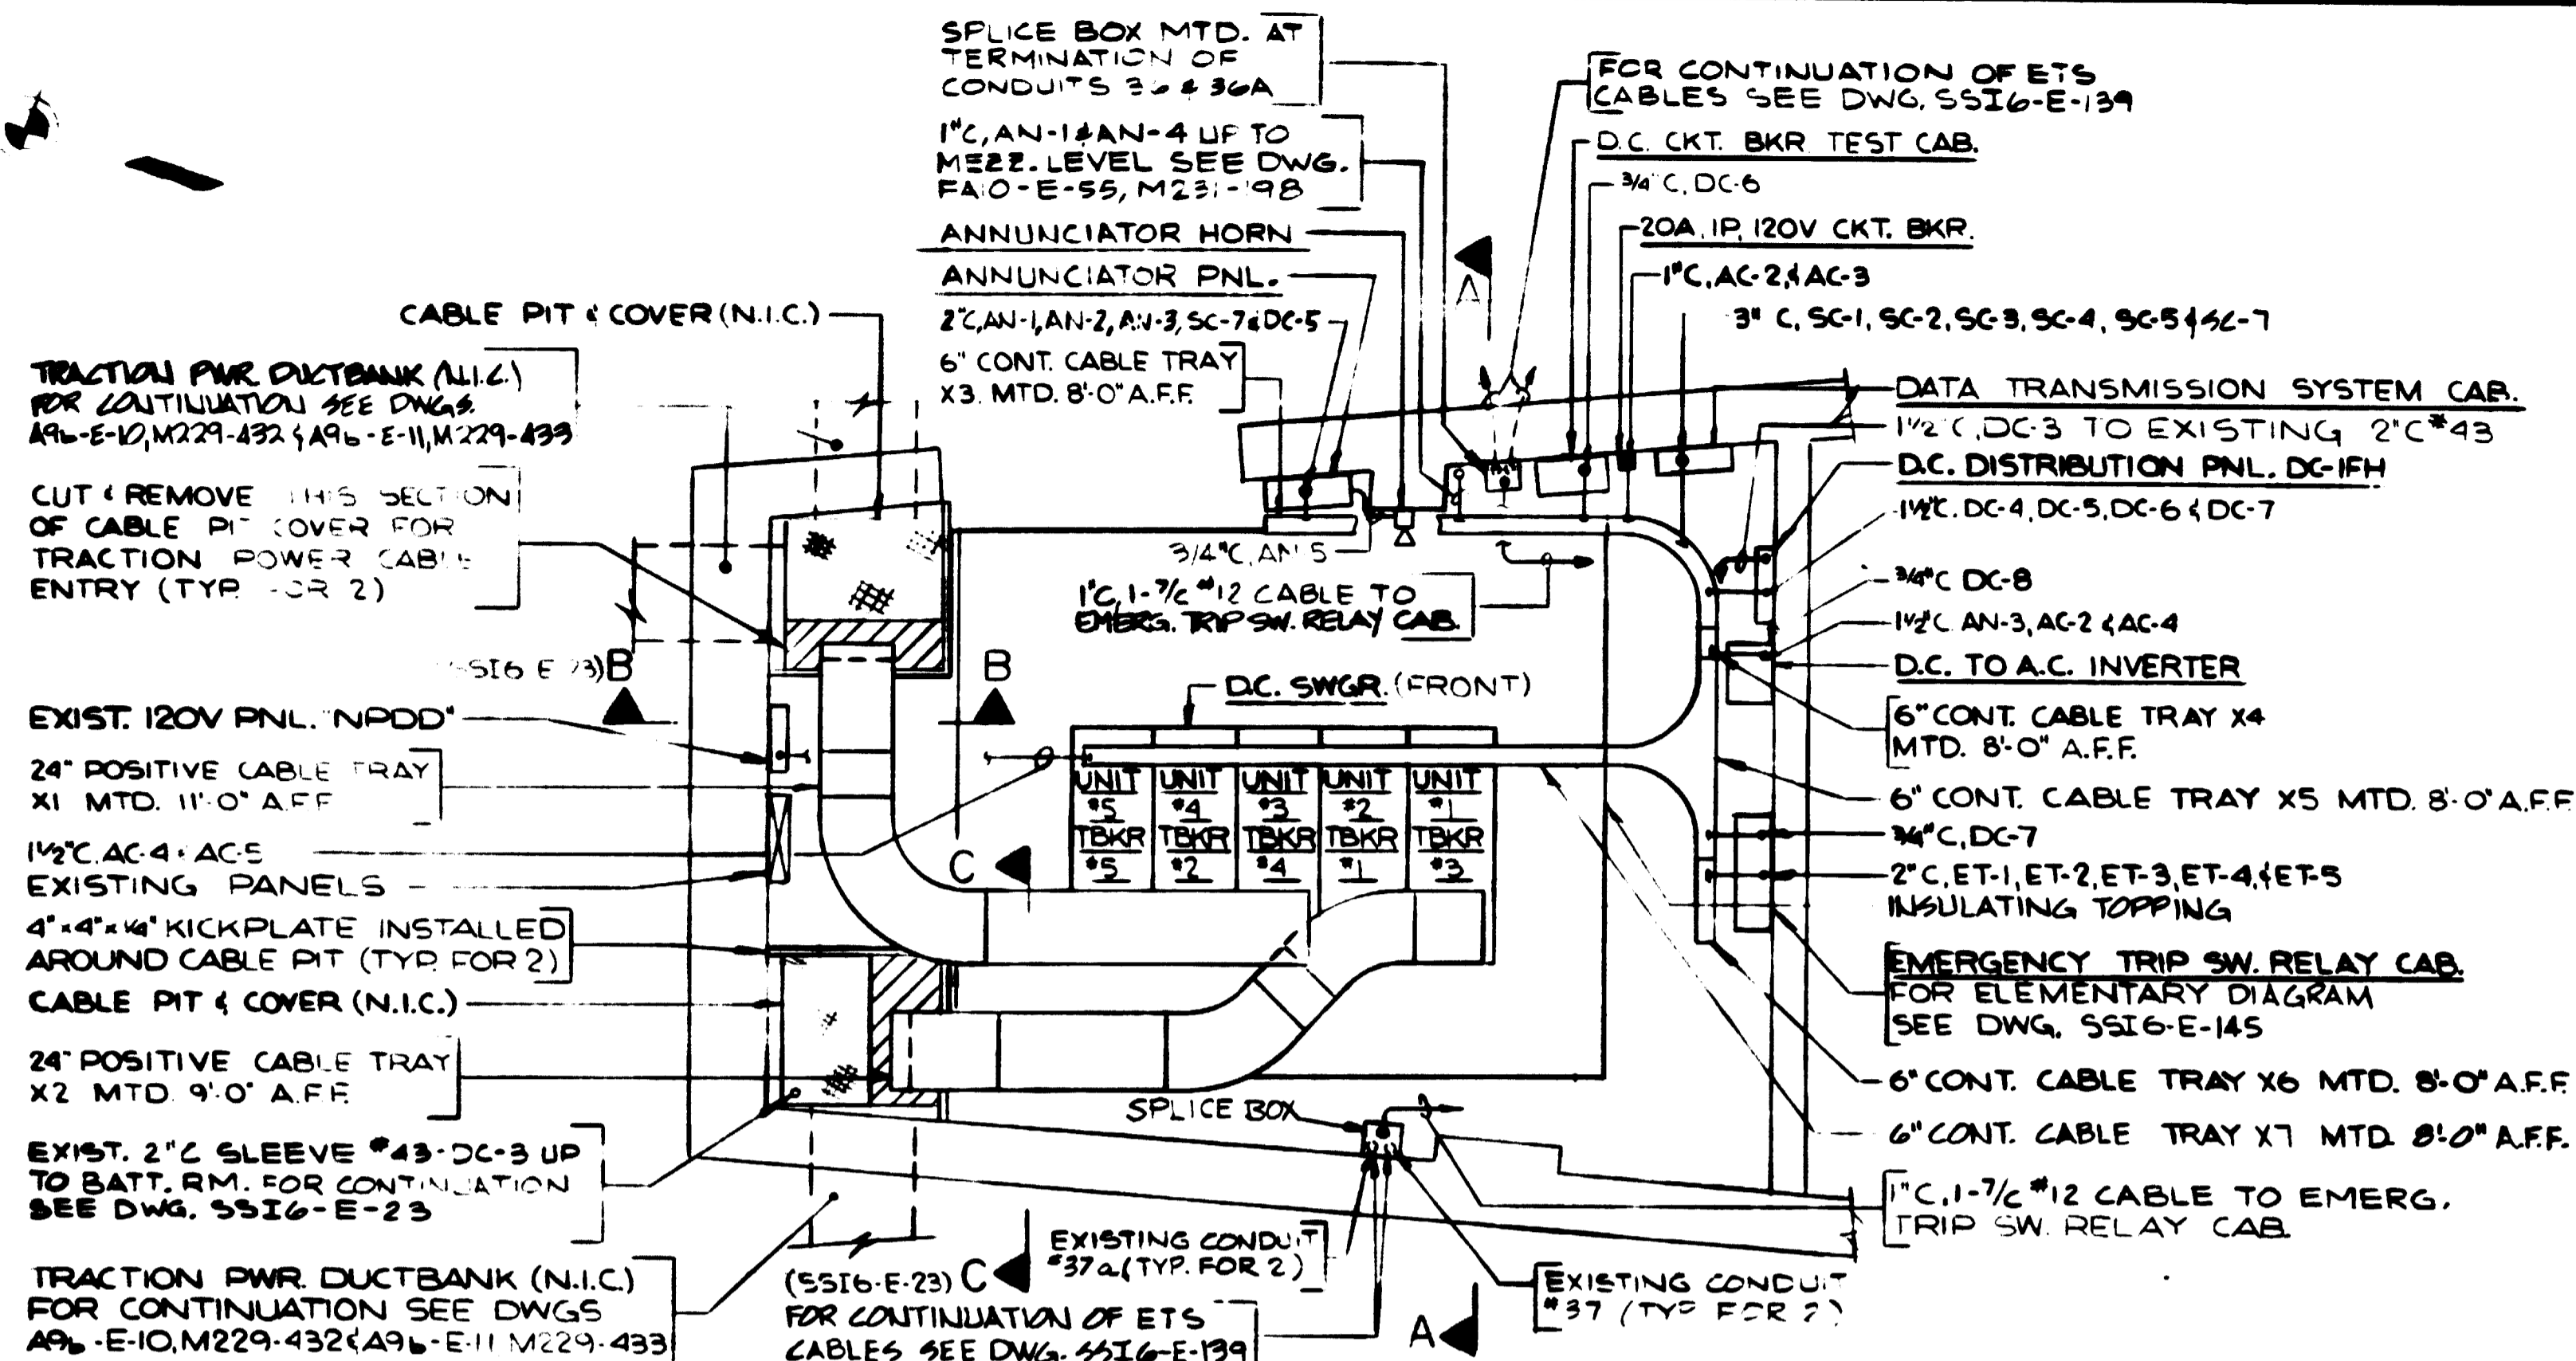 SPLICE BOX MTD. AT
TERMINATION OF
CONDUITS 36 & 36A
1"C, AN-1 & AN-4 UP TO
MEZZ. LEVEL SEE DWG.
FA10-E-55, M231-198
ANNUNCIATOR HORN
ANNUNCIATOR PNL.
2"C, AN-1, AN-2, AN-3, SC-7 & DC-5
6" CONT. CABLE TRAY
X3. MTD. 8'-0" A.F.F.
FOR CONTINUATION OF ETS
CABLES SEE DWG. SSI6-E-139
D.C. CKT. BKR TEST CAB.
3/4" C, DC-6
20A, 1P, 120V CKT. BKR.
1"C, AC-2, & AC-3
3" C, SC-1, SC-2, SC-3, SC-4, SC-5 & SC-7
A
CABLE PIT & COVER (N.I.C.)
TRACTION PWR. DUCTBANK (N.I.C.)
FOR CONTINUATION SEE DWGS.
A9b-E-10, M229-432 & A9b-E-11, M229-433
CUT & REMOVE THIS SECTION
OF CABLE PIT COVER FOR
TRACTION POWER CABLE
ENTRY (TYP. FOR 2)
(SSI6-E-23) B
B
EXIST. 120V PNL. "NPDD"
24" POSITIVE CABLE TRAY
X1 MTD. 11'-0" A.F.F.
1 1/2"C, AC-4 & AC-5
EXISTING PANELS
4"x4"x1/4" KICKPLATE INSTALLED
AROUND CABLE PIT (TYP. FOR 2)
CABLE PIT & COVER (N.I.C.)
24" POSITIVE CABLE TRAY
X2 MTD. 9'-0" A.F.F.
EXIST. 2"C SLEEVE #43-DC-3 UP
TO BATT. RM. FOR CONTINUATION
SEE DWG. SSI6-E-23
TRACTION PWR. DUCTBANK (N.I.C.)
FOR CONTINUATION SEE DWGS
A9b-E-10, M229-432 & A9b-E-11 M229-433
3/4"C, AN-5
1"C, 1-7/C #12 CABLE TO
EMERG. TRIP SW. RELAY CAB.
D.C. SWGR. (FRONT)
UNIT UNIT UNIT UNIT UNIT
#5 #4 #3 #2 #1
TBKR TBKR TBKR TBKR TBKR
#5 #2 #4 #1 #3
C
SPLICE BOX
EXISTING CONDUIT
#37a (TYP. FOR 2)
(SSI6-E-23) C
FOR CONTINUATION OF ETS
CABLES SEE DWG. SSI6-E-139
A
EXISTING CONDUIT
#37 (TYP FOR 2)
DATA TRANSMISSION SYSTEM CAB.
1 1/2"C, DC-3 TO EXISTING 2"C #43
D.C. DISTRIBUTION PNL. DC-1FH
1 1/2"C. DC-4, DC-5, DC-6 & DC-7
3/4"C DC-8
1 1/2"C AN-3, AC-2 & AC-4
D.C. TO A.C. INVERTER
6" CONT. CABLE TRAY X4
MTD. 8'-0" A.F.F.
6" CONT. CABLE TRAY X5 MTD. 8'-0" A.F.F.
3/4"C, DC-7
2"C, ET-1, ET-2, ET-3, ET-4, & ET-5
INSULATING TOPPING
EMERGENCY TRIP SW. RELAY CAB.
FOR ELEMENTARY DIAGRAM
SEE DWG. SSI6-E-145
6" CONT. CABLE TRAY X6 MTD. 8'-0" A.F.F.
6" CONT. CABLE TRAY X7 MTD. 8'-0" A.F.F.
1"C, 1-7/C #12 CABLE TO EMERG.
TRIP SW. RELAY CAB.